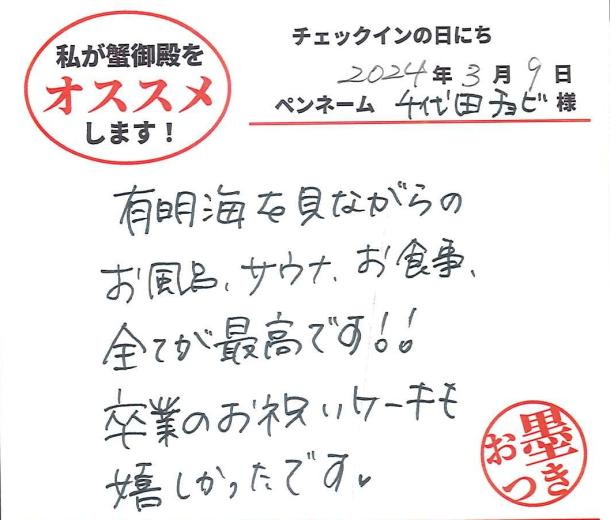 私が蟹御殿を
オススメ
します!
チェックインの日にち
2024年3月9日
ペンネーム 千代田チョビ様
有明海を見ながらの
お風呂、サウナ、お食事、
全てが最高です!!
卒業のお祝いケーキも
嬉しかったです♥
お墨つき